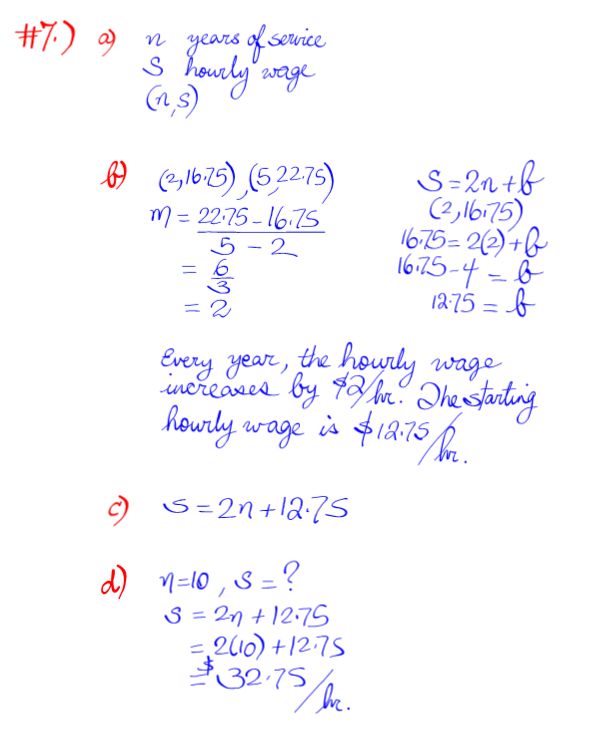 #7.) a) n years of service
S hourly wage
(n,s)
b) (2,16.75), (5,22.75)
m = 22.75-16.75
5 - 2
= 6
3
= 2
S = 2n + b
(2,16.75)
16.75 = 2(2) + b
16.75-4 = b
12.75 = b
Every year, the hourly wage
increases by $2/hr. The starting
hourly wage is $12.75/hr.
c) s = 2n + 12.75
d) n=10, s = ?
s = 2n + 12.75
= 2(10) + 12.75
= $32.75/hr.